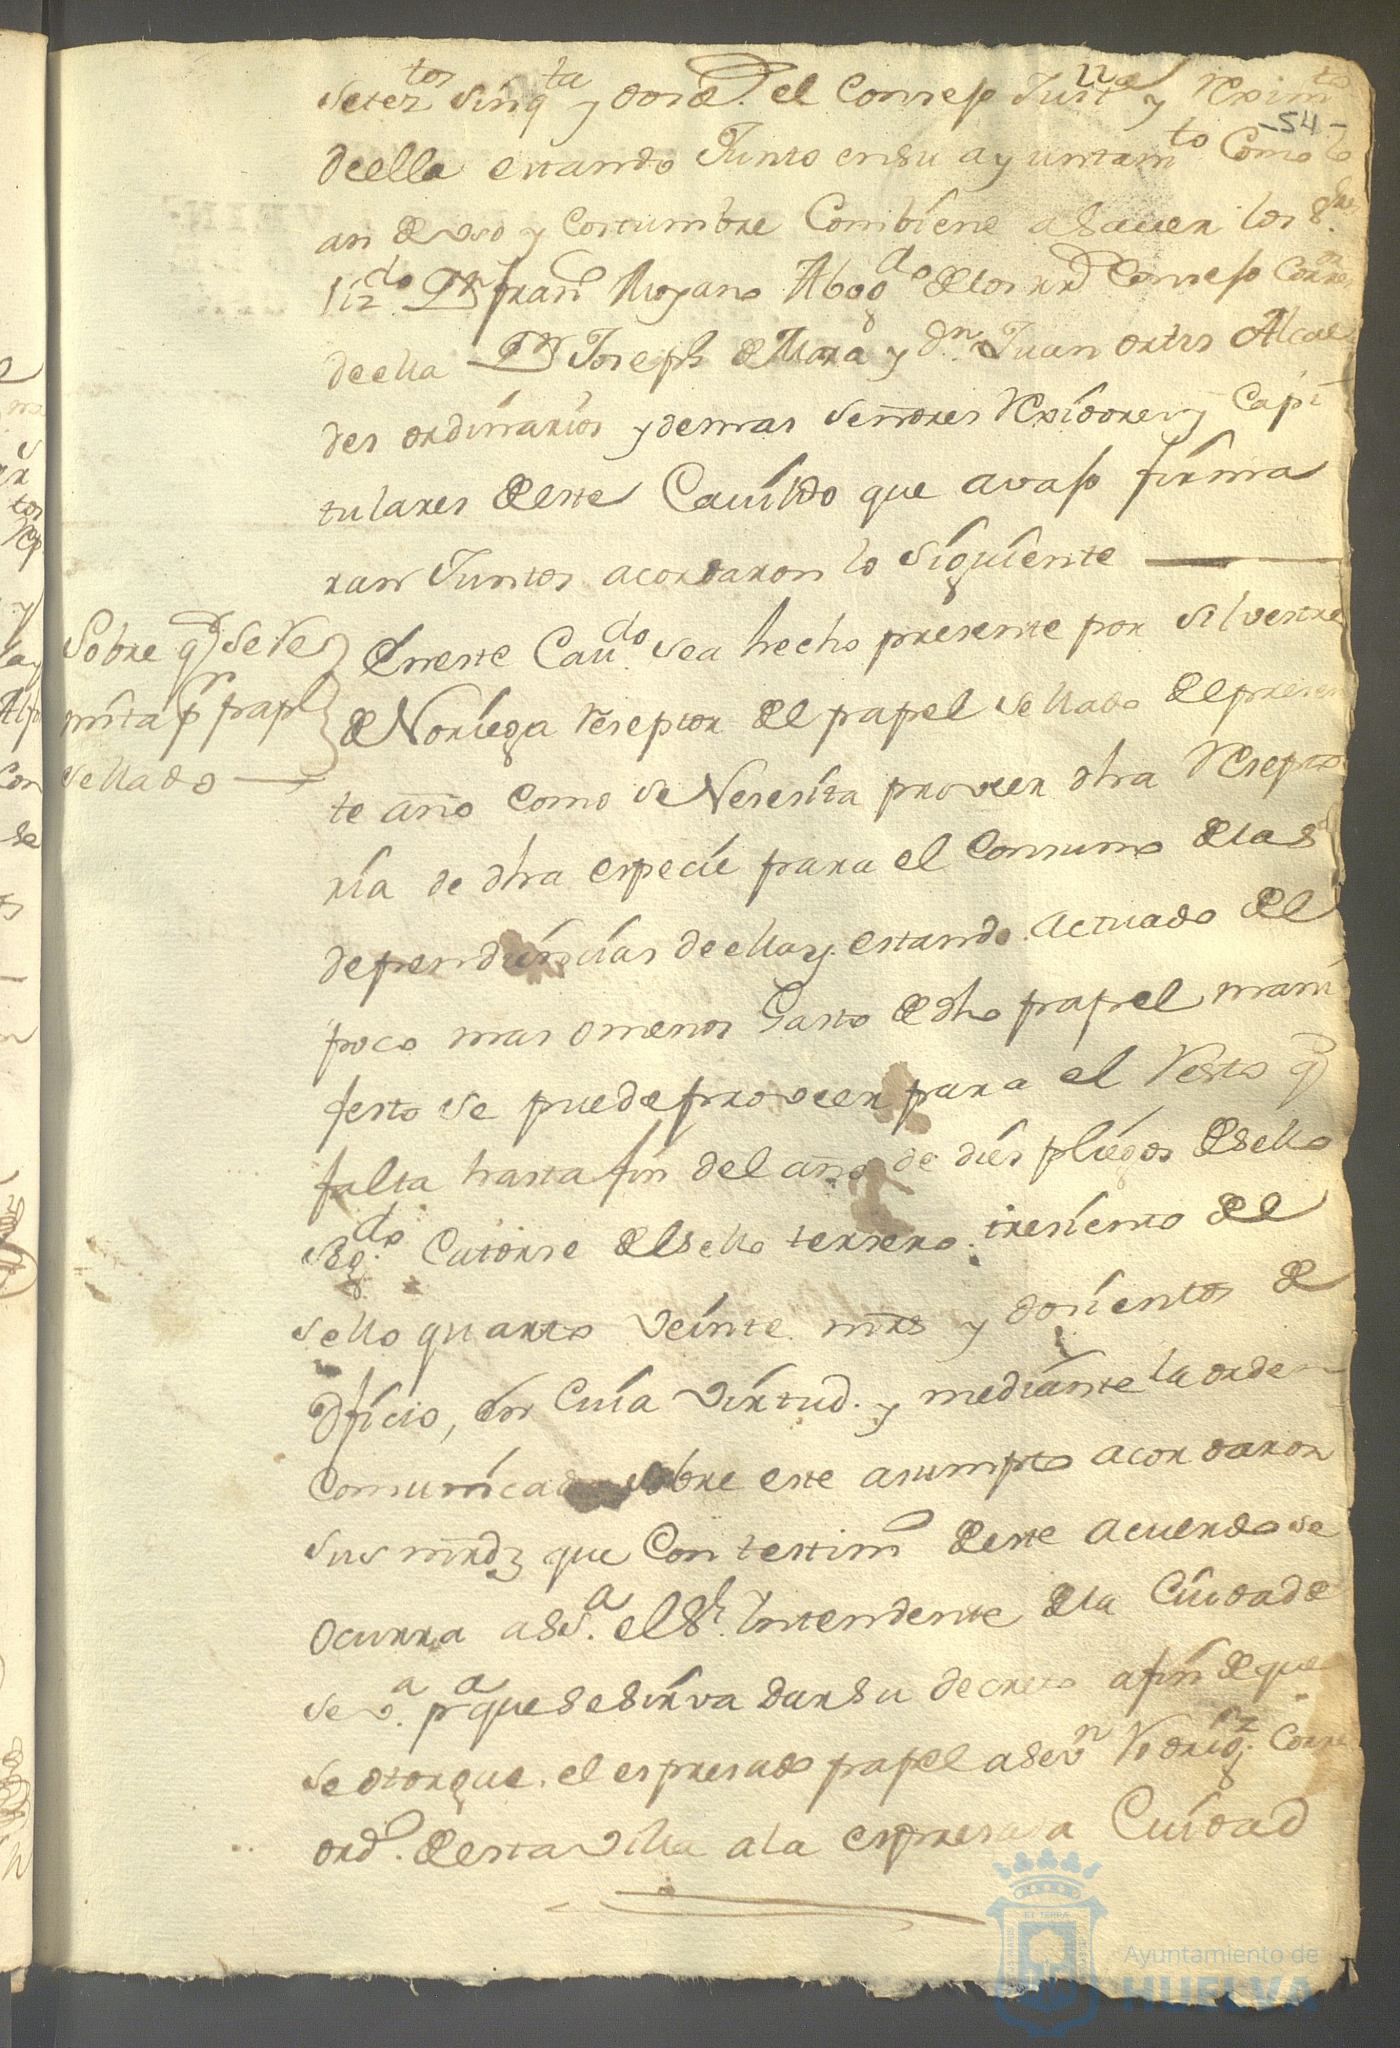 setez.tos sinq.ta y dos a. el Consejo Just.a y Reximto
22
-54-
de ella estando Junto en su ayuntam.to Como lo
an de uso y Costumbre Combiene a Sauer los S.res
Liz.do Dn fran.co Moyano Abog.do de los RR.s Consejo Corre.or
de ella Dn Joseph de Mora y Dn. Juan ortis Alcal
des ordinarios y demas señores Rexidores y Capi
tulares de este Cauildo que avaso firma
ran Juntos acordaron lo siguiente
Sobre q.e se Re
mita p.r papl
sellado
En este Cau.do sea hecho presente por silvestre
de Noriega Reseptor del papel sellado del presen
te año como se Nesesita proveer dha Resepto
ria de dha espeçie para el Consumo de las
dependinçias de ella y. estando actuado el
poco mas o menos Gasto de dho papel mani
festo se puede proveer para el Resto q.e
falta hasta fin del año de dies pliegos de sello
seg.do Catorse del sello tersero. tresiento del
sello quarto Veinte mrs y dosientos de
Ofiçio, en Cuia Virtud. y mediante la orden
Comunicada sobre este asumpto acordaron
sus mrdz que Con testim.o de este acuerdo se
ocurra a S.S.a el Sr. Intendente de la Ciudad de
se v.a p.a que se sirva dar su decreto a fin de que
se otorgue. el espresado papel a Sev.n Rodrig.z Corre
ord.o de esta Villa a la espresada Ciudad
Ayuntamiento de
HUELVA